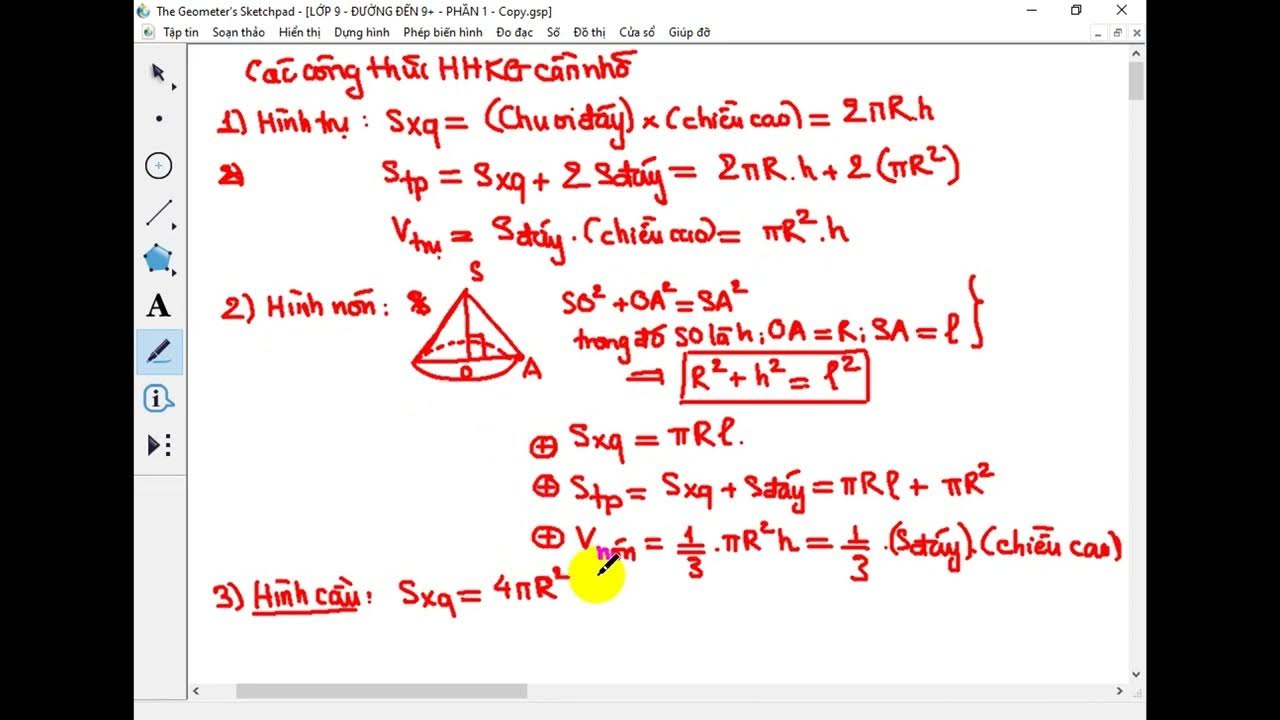 The Geometer's Sketchpad - [LỚP 9 - ĐƯỜNG ĐẾN 9+ - PHẦN 1 - Copy.gsp]
Tập tin Soạn thảo Hiển thị Dựng hình Phép biến hình Đo đạc Số Đồ thị Cửa sổ Giúp đỡ
Các công thức HHKG cần nhớ
1) Hình trụ : Sxq = (Chu vi đáy) × (chiều cao) = 2πR.h
2) Stp = Sxq + 2 Sđáy = 2πR.h + 2(πR²)
Vtrụ = Sđáy . (chiều cao) = πR².h
2) Hình nón :
S
O
A
SO² + OA² = SA²
trong đó SO là h ; OA = R ; SA = l }
⇒ R² + h² = l²
⊕ Sxq = πRl.
⊕ Stp = Sxq + Sđáy = πRl + πR²
⊕ Vnón = 1/3 . πR²h = 1/3 . (Sđáy) . (chiều cao)
3) Hình cầu : Sxq = 4πR²
A